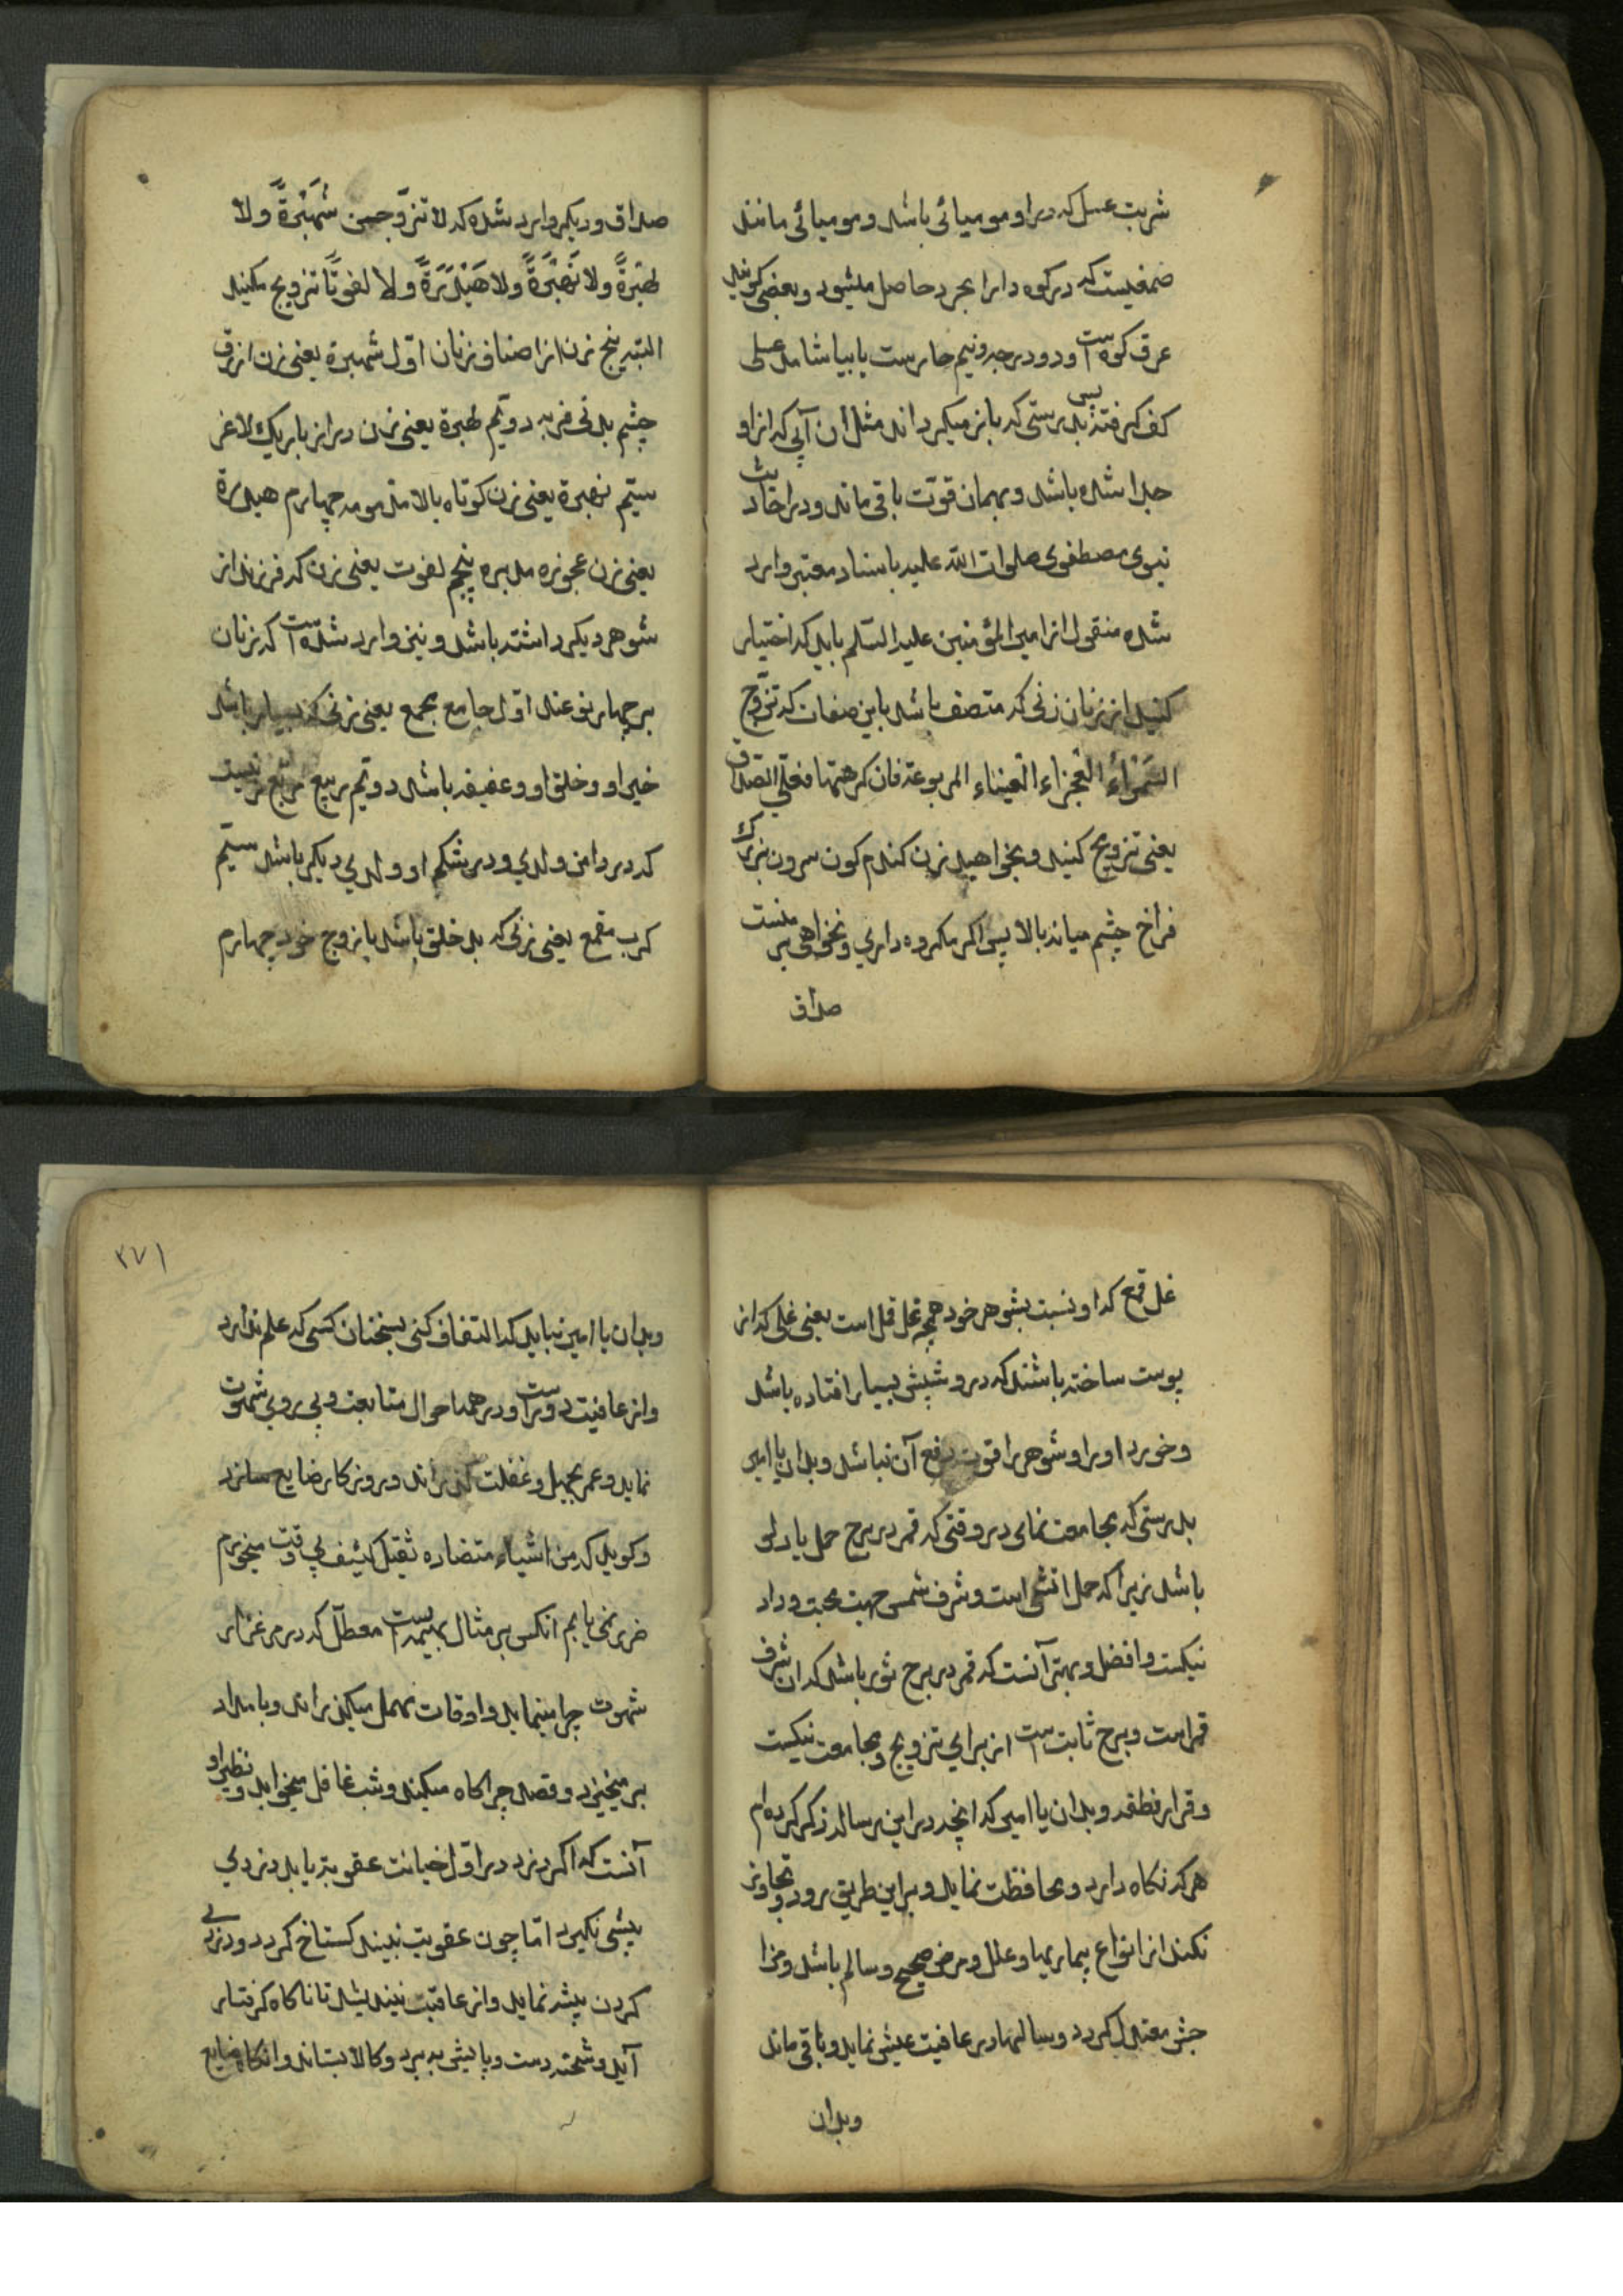 شربت عسل که در او مومیائی باشد و مومیائی مانند
صمغیست که در کوه دارا بجرد حاصل میشود و بعضی کویند
عرق کوه است و در درجه دویم حارست یا بیاشامد عسلی
کف کرفته پس بدرستی که باز میکرداند مثل آن آبی که از او
جدا شده باشد و بهمان قوت باقی ماند و در احادیث
نبوی مصطفوی صلوات الله علیه باسناد معتبر وارد
شده منقول از امیر المؤمنین علیه السلم باید که اختیار
کنید از زنان زنی که متصف باشد باین صفات که تزوج
السمراء العجزاء العیناء المربوعة فان کرهتها فعلی الصداق
یعنی تزویج کنید و بخواهید زن کندم کون سرون بزرک
فراخ چشم میانه بالا پس اکر مکروه داری و نخواهی بر منست
صداق
صداق و دیکر وارد شده که لا تزوجن شهبرة ولا
لهبرة ولا نهبرة ولا هیدرة ولا لفوتا تزویج مکنید
البته پنج زن از اصناف زنان اول شهبرة یعنی زن ازرق
چشم بد نی فربه دویم لهبرة یعنی زن دراز باریک لاغر
سیم نهبرة یعنی زن کوتاه بالا مذمومه چهارم هیدرة
یعنی زن عجوزه مدبره پنجم لفوت یعنی زن که فرزند از
شوهر دیکر داشته باشد و نیز وارد شده است که زنان
بر چهار نوعند اول جامع مجمع یعنی زنی که بسیار باشد
خیر او و خلق او و عفیفه باشد دویم ربیع مربع زنیست
که در دامن ولدی و در شکم او ولدی دیکر باشد سیم
کرب مقمع یعنی زنی که بد خلق باشد با زوج خود چهارم
غل قمع که او نسبت بشوهر خود همچو غل قمل است یعنی غلی که از
پوست ساخته باشند که در و شپش بسیار افتاده باشد
و خورد او را و شوهر را قوت دفع آن نباشد و بدان یا امیر
بدرستی که مجامعت نمای در وقتی که قمر در برج حمل یا دلو
باشد زیرا که حمل آتشی است و شرف شمس جهت محبت و داد
نیکست و افضل و بهتر آنست که قمر در برج ثور باشد که ان شرف
قمر است و برج ثابت است از برای تزویج و مجامعت نیکست
و قرار نطفه و بدان یا امیر که انچه در این رساله ذکر کرده ام
هر که نکاه دارد و محافظت نماید و بر این طریق رود و تجاوز
نکند از انواع بیماریها و علل و مرض صحیح و سالم باشد و مزا
جش معتدل کردد و سالها در عافیت عیش نماید و باقی ماند
و بدان
۳۷۱
و بدان یا امیر نباید که التفات کنی بسخنان کسی که علم ندارد
و از عافیت دور است و در همه احوال متابعت و پی روی شهوت
نماید و عمر بجهل و غفلت کذراند و روزکار ضایع سازد
و کوید که من اشیاء متضاره ثقیل کثیف بی وقت میخورم
ضرر نمی یابم انکس بر مثال بهیمه است معطل که در مرغزار
شهوت چرا مینماید و اوقات مهمل میکذراند و بامداد
بر میخیزد و قصد چراکاه میکند و شب غافل میخوابد و نظیر او
آنست که اکر دزد در اول خیانت عقوبت یابد دزدی
پیشی نکیرد اما چون عقوبت نبیند کستاخ کردد و دزدی
کردن پیشه نماید و از عاقبت نیندیشد تا ناکاه کرفتار
آید و شحنه دست و پایش ببرد و کالا بستاند و انکاه ضایع